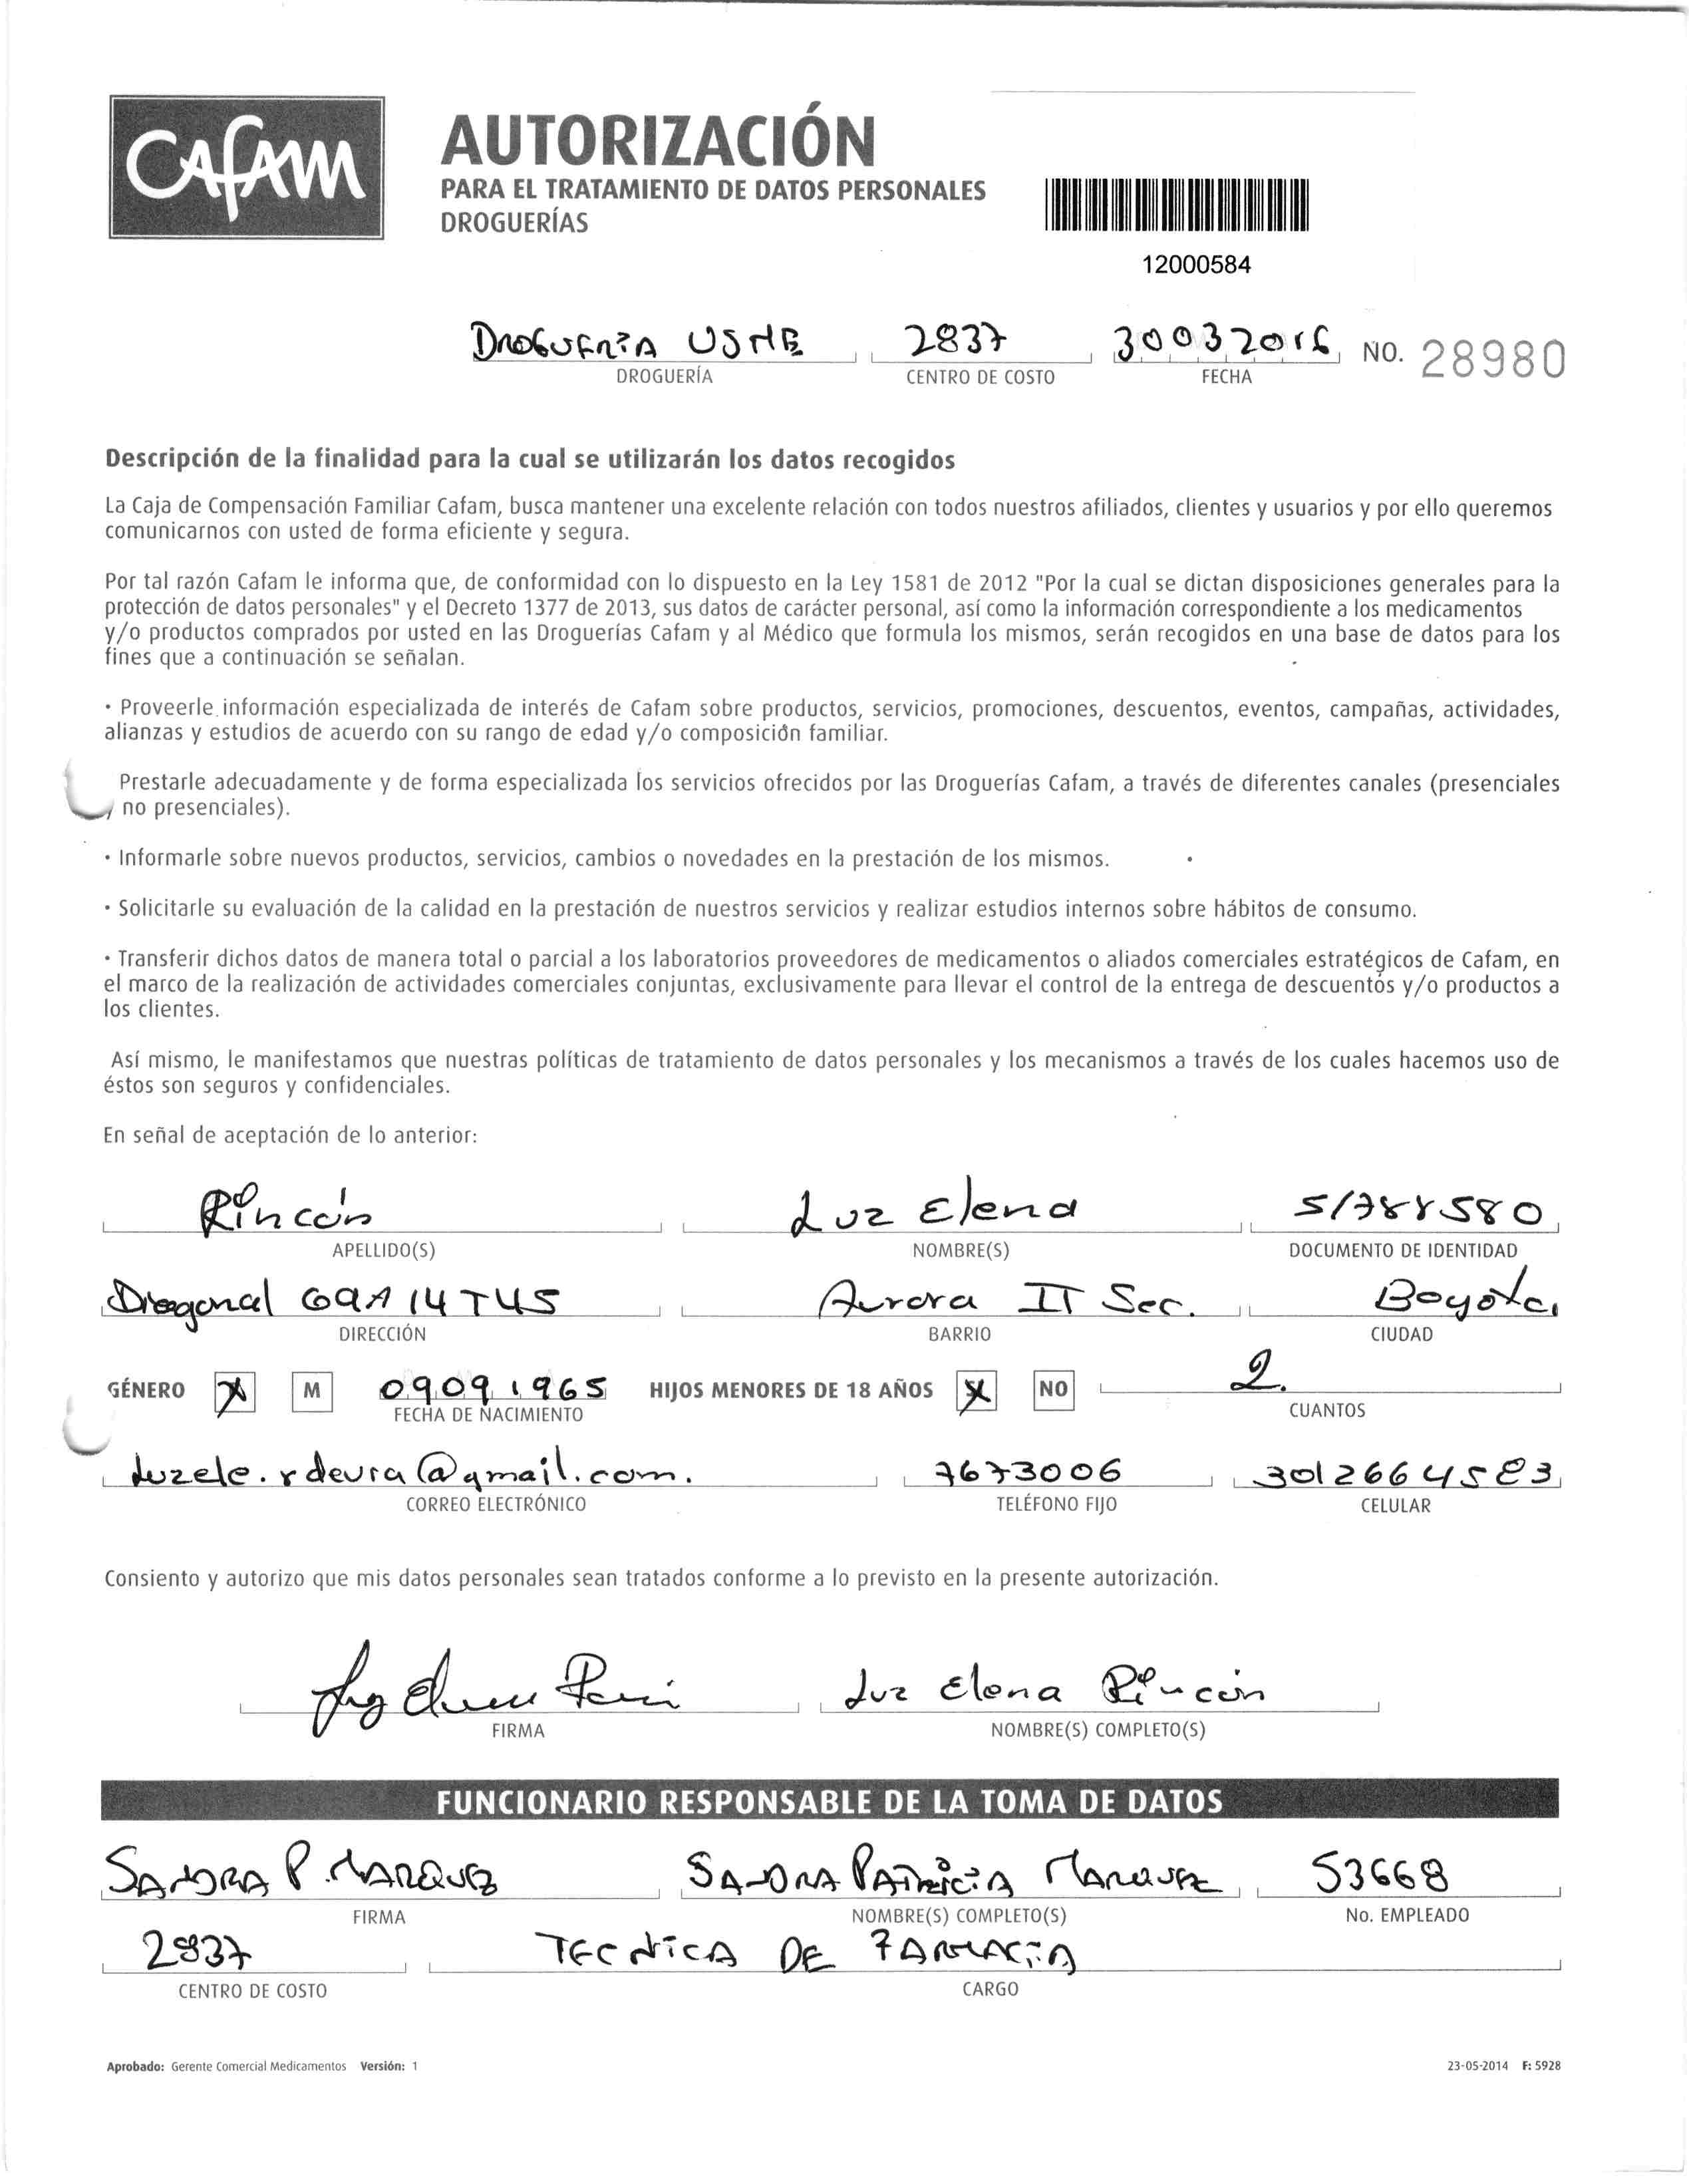 CAFAM
AUTORIZACIÓN
PARA EL TRATAMIENTO DE DATOS PERSONALES
DROGUERÍAS
12000584
DROGUERIA USME 2837 30032016 NO. 28980
DROGUERÍA CENTRO DE COSTO FECHA
Descripción de la finalidad para la cual se utilizarán los datos recogidos
La Caja de Compensación Familiar Cafam, busca mantener una excelente relación con todos nuestros afiliados, clientes y usuarios y por ello queremos
comunicarnos con usted de forma eficiente y segura.
Por tal razón Cafam le informa que, de conformidad con lo dispuesto en la Ley 1581 de 2012 "Por la cual se dictan disposiciones generales para la
protección de datos personales" y el Decreto 1377 de 2013, sus datos de carácter personal, así como la información correspondiente a los medicamentos
y/o productos comprados por usted en las Droguerías Cafam y al Médico que formula los mismos, serán recogidos en una base de datos para los
fines que a continuación se señalan.
• Proveerle información especializada de interés de Cafam sobre productos, servicios, promociones, descuentos, eventos, campañas, actividades,
alianzas y estudios de acuerdo con su rango de edad y/o composición familiar.
Prestarle adecuadamente y de forma especializada los servicios ofrecidos por las Droguerías Cafam, a través de diferentes canales (presenciales
y no presenciales).
• Informarle sobre nuevos productos, servicios, cambios o novedades en la prestación de los mismos.
• Solicitarle su evaluación de la calidad en la prestación de nuestros servicios y realizar estudios internos sobre hábitos de consumo.
• Transferir dichos datos de manera total o parcial a los laboratorios proveedores de medicamentos o aliados comerciales estratégicos de Cafam, en
el marco de la realización de actividades comerciales conjuntas, exclusivamente para llevar el control de la entrega de descuentos y/o productos a
los clientes.
Así mismo, le manifestamos que nuestras políticas de tratamiento de datos personales y los mecanismos a través de los cuales hacemos uso de
éstos son seguros y confidenciales.
En señal de aceptación de lo anterior:
Rincón Luz Elena 51788580
APELLIDO(S) NOMBRE(S) DOCUMENTO DE IDENTIDAD
Diagonal 69A 14 T45 Aurora II Sec. Bogota
DIRECCIÓN BARRIO CIUDAD
GÉNERO X M 09091965 HIJOS MENORES DE 18 AÑOS X NO 2.
FECHA DE NACIMIENTO CUANTOS
luzele.rdeura@gmail.com. 7673006 3012664583
CORREO ELECTRÓNICO TELÉFONO FIJO CELULAR
Consiento y autorizo que mis datos personales sean tratados conforme a lo previsto en la presente autorización.
Luz Elena Rincón
FIRMA NOMBRE(S) COMPLETO(S)
FUNCIONARIO RESPONSABLE DE LA TOMA DE DATOS
SANDRA P. MARQUEZ SANDRA PATRICIA MARQUEZ 53668
FIRMA NOMBRE(S) COMPLETO(S) No. EMPLEADO
2837 TECNICA DE FARMACIA
CENTRO DE COSTO CARGO
Aprobado: Gerente Comercial Medicamentos Versión: 1 23-05-2014 F: 5928